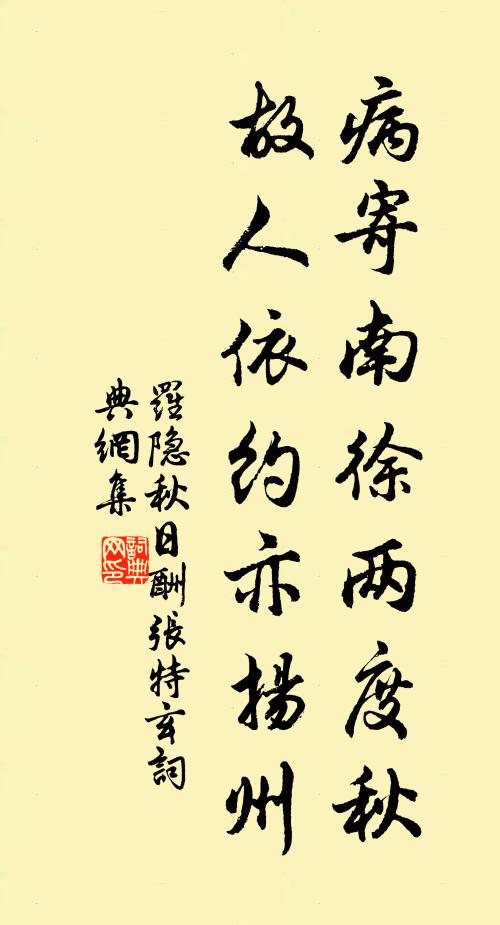 病寄南徐两度秋
故人依約亦揚州
羅隐秋日酬張特玄詞
典網集
詞典网印